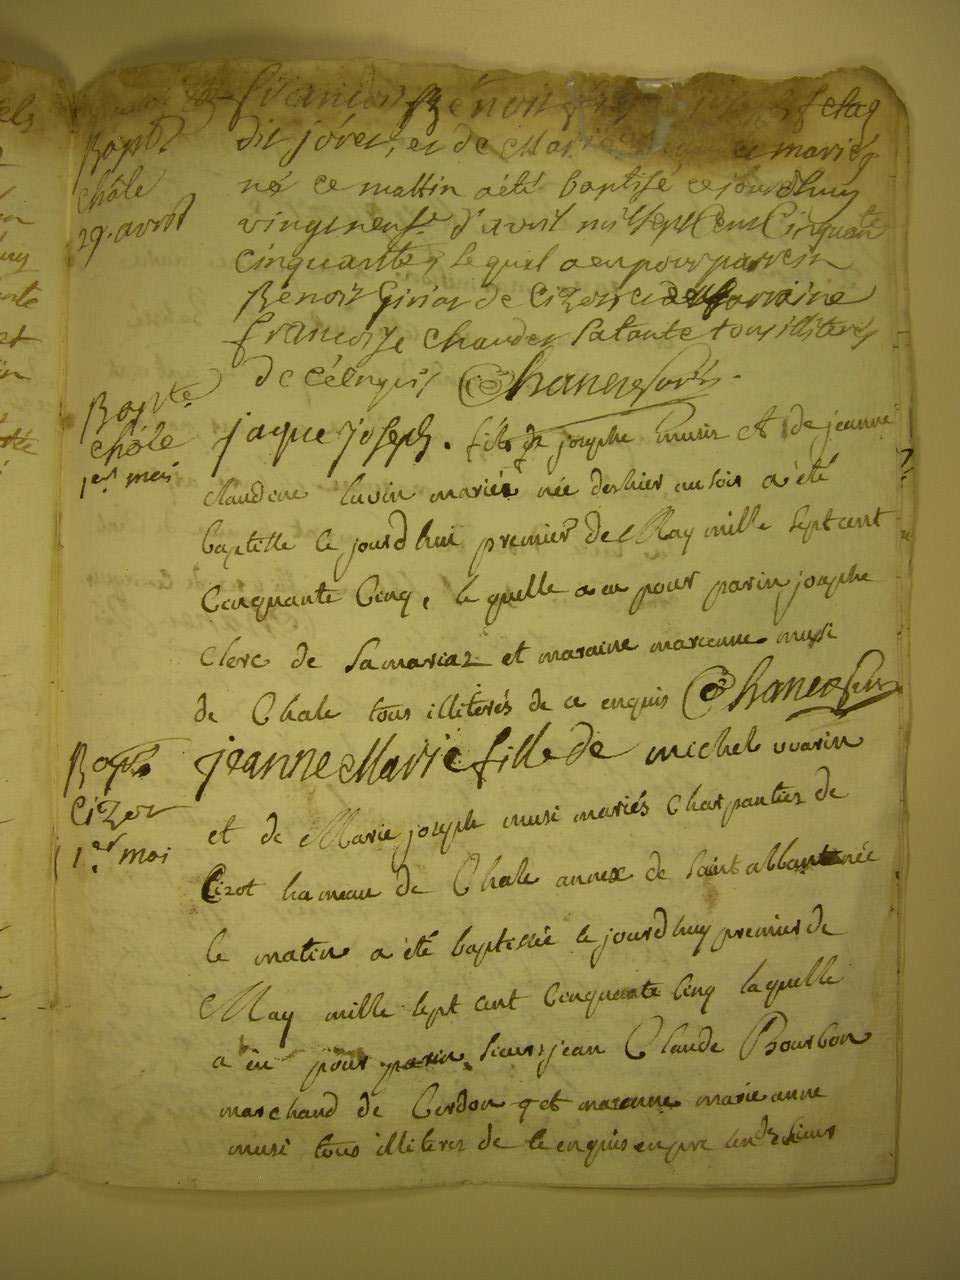 françois Benoit
Bapt
Châle
29. avril
dit jóver, et de Marie mariés
né ce mattin a été baptisé ce jourdhuy
vingtneufe d'avril mil sept Cent Cinquante
cinquante, le quel a eu pour parrein
Benoit de Cizerre et Marraine
francoise chauder sa tante tous illiterés
de ce enquis
Bapte
Chôle
1er mai
jaque joseph. fils de josephe musir et de jeanne
claudine luvin mariés née des hier au soir a été
baptisse ce jourd'hui premier de May mille sept cent
Cinquante Cinq, le quelle a eu pour parin josephe
Clerc de Samariaz et maraine marienne musi
de Chale tous illiterés de ce enquis
Bapt
Cizer
1er mai
jeanne Marie fille de michel vvarin
et de Marie joseph musi mariés Charpantier de
Cizot hameau de Chale annex de Saint alban née
le matin a été baptissée le jourdhuy premier de
May mille sept cent Cinquante Cinq laquelle
a eu pour parin Sieur jean Claude Bourbon
marchand de Cordon et marenne marie anne
musi tous illiteres de ce enquis en pre sieur